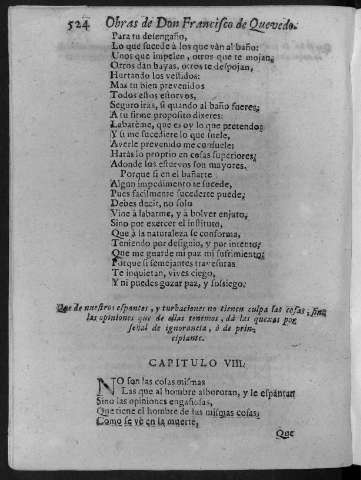 524 Obras de Don Francisco de Quevedo.
Para tu desengaño,
Lo que sucede à los que vàn al baño:
Unos que impelen, otros que te mojan,
Otros dàn bayas, otros te despojan,
Hurtando los vestidos:
Mas tu bien prevenidos
Todos estos estorvos,
Seguro iràs, si quando al baño fueres,
A tu firme proposito dixeres:
Labarème, que es oy lo que pretendo:
Y si me sucediere lo que suele,
Averle prevenido me consuele:
Haràs lo proprio en cosas superiores,
Adonde los estorvos son mayores.
Porque si en el bañarte
Algun impedimento te sucede,
Pues facilmente sucederte puede,
Debes decir, no solo
Vine à labarme, y à bolver enjuto,
Sino por exercer el instituto,
Que à la naturaleza se conforma,
Teniendo por designio, y por intento,
Que me guarde mi paz mi sufrimiento;
Porque si semejantes travesuras
Te inquietan, vives ciego,
Y ni puedes gozar paz, y sosiego.
Que de nuestros espantos, y turbaciones no tienen culpa las cosas, sino
las opiniones que de ellas tenemos, dà las quexas por
señal de ignorancia, ò de prin-
cipiante.
CAPITULO VIII.
NO son las cosas mismas
Las que al hombre alborotan, y le espantan
Sino las opiniones engañosas,
Que tiene el hombre de las mismas cosas;
Como se vè en la muerte,
Que